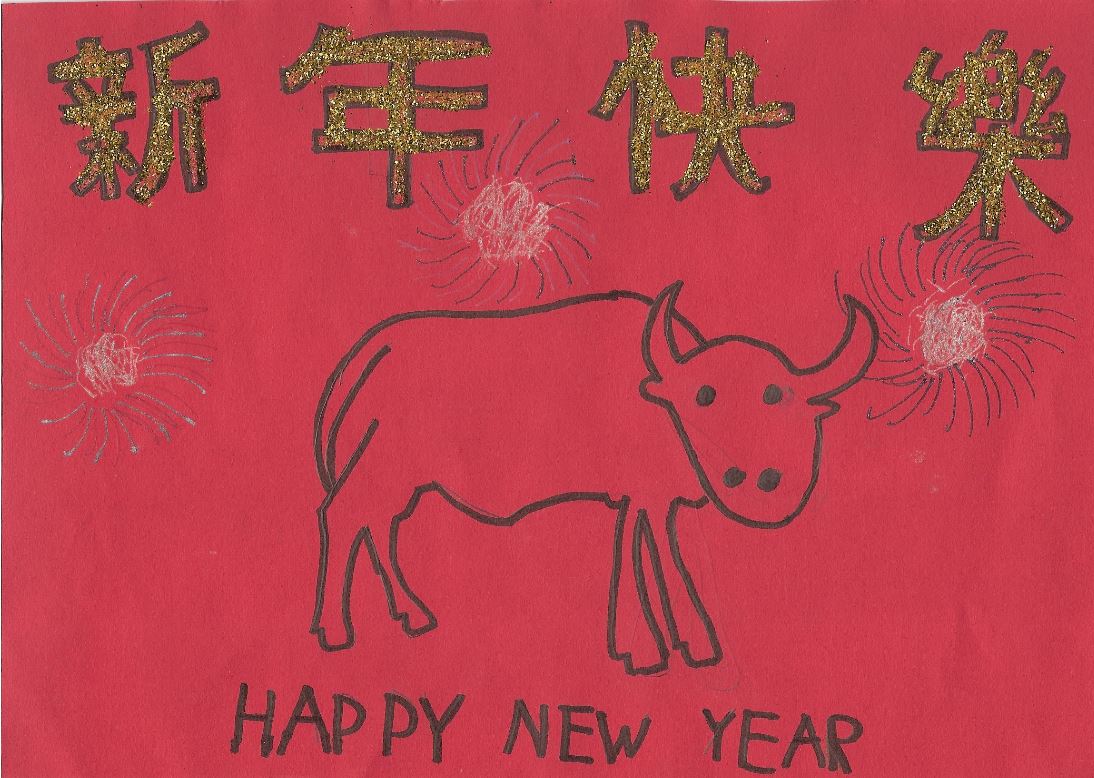 新年快樂
HAPPY NEW YEAR